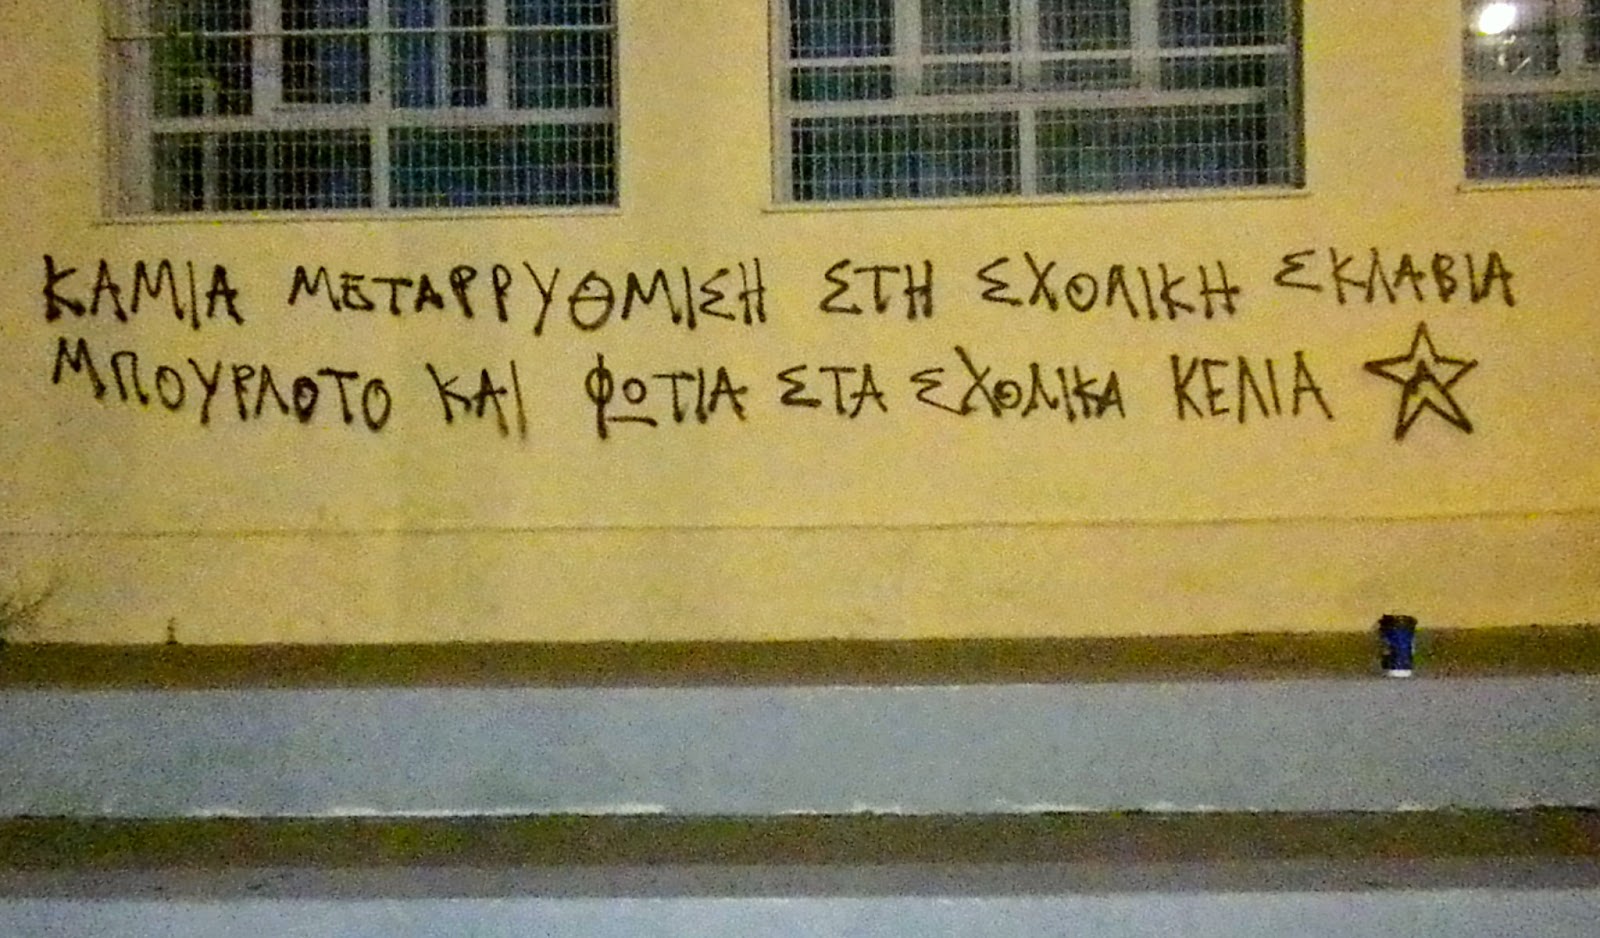 ΚΑΜΙΑ ΜΕΤΑΡΡΥΘΜΙΣΗ ΣΤΗ ΣΧΟΛΙΚΗ ΣΚΛΑΒΙΑ
ΜΠΟΥΡΛΟΤΟ ΚΑΙ ΦΩΤΙΑ ΣΤΑ ΣΧΟΛΙΚΑ ΚΕΛΙΑ